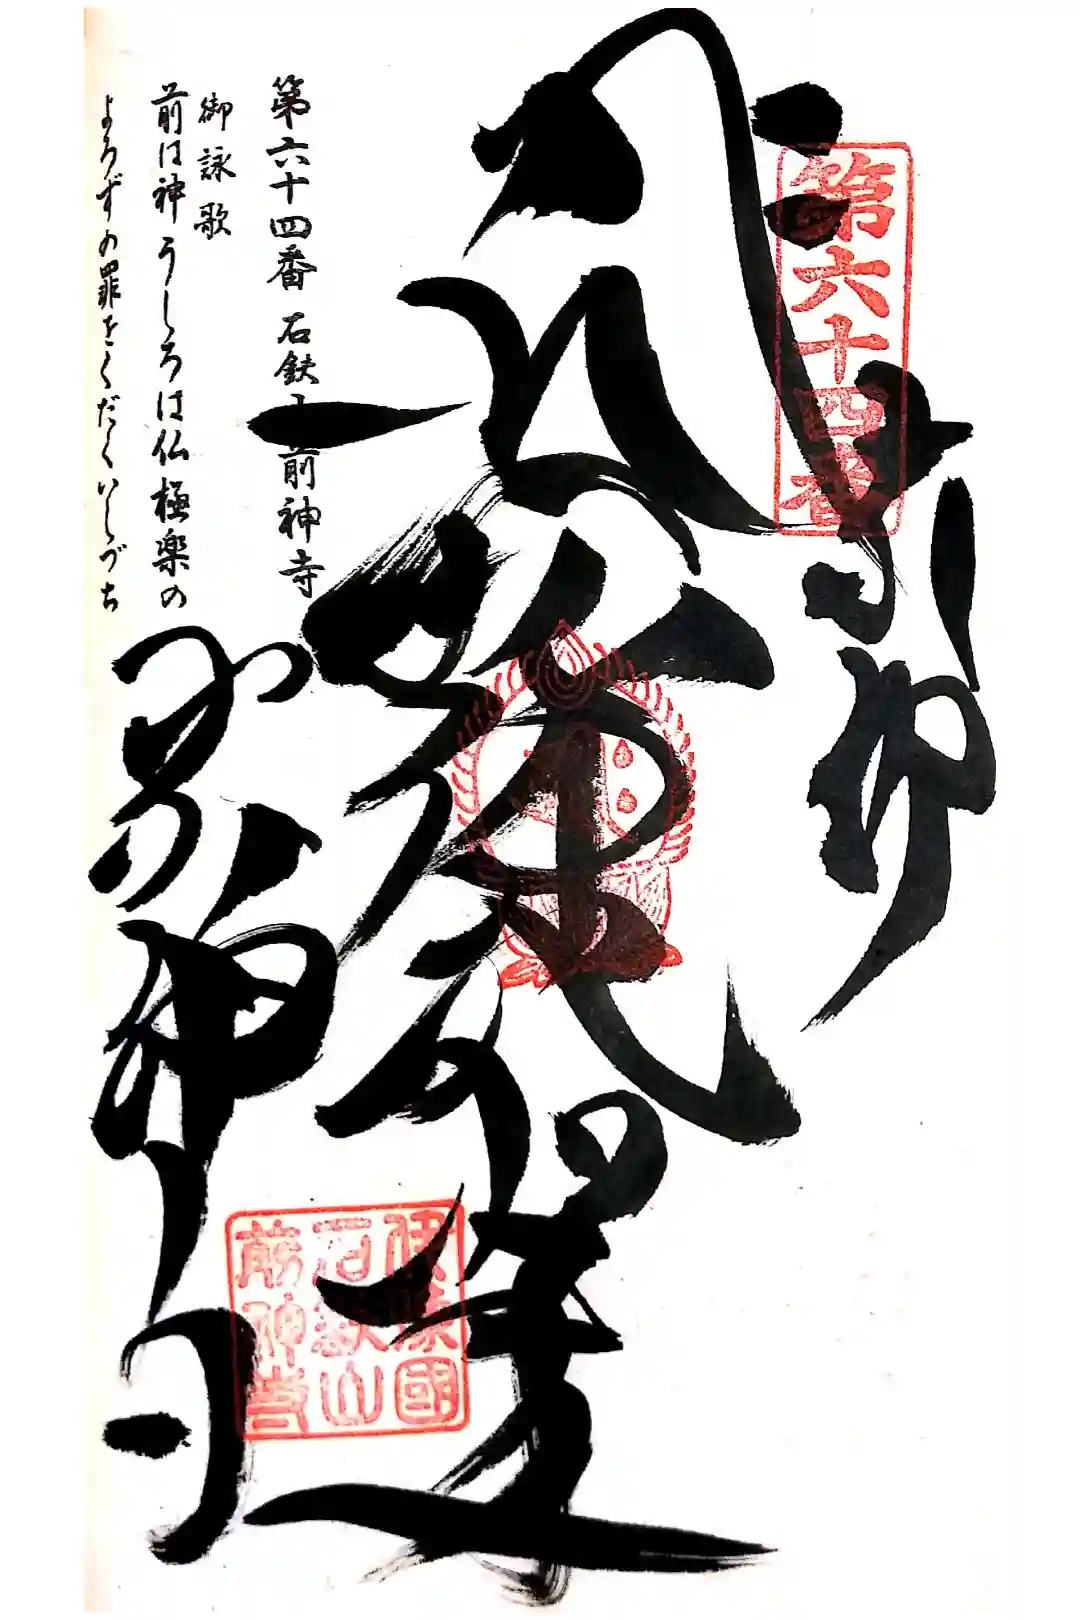 第六十四番
奉拝
阿弥陀如来
前神寺
伊豫國
石鈇山
前神寺
第六十四番 石鈇山 前神寺
御詠歌
前は神うしろは仏極楽の
よろずの罪をくだくいしづち